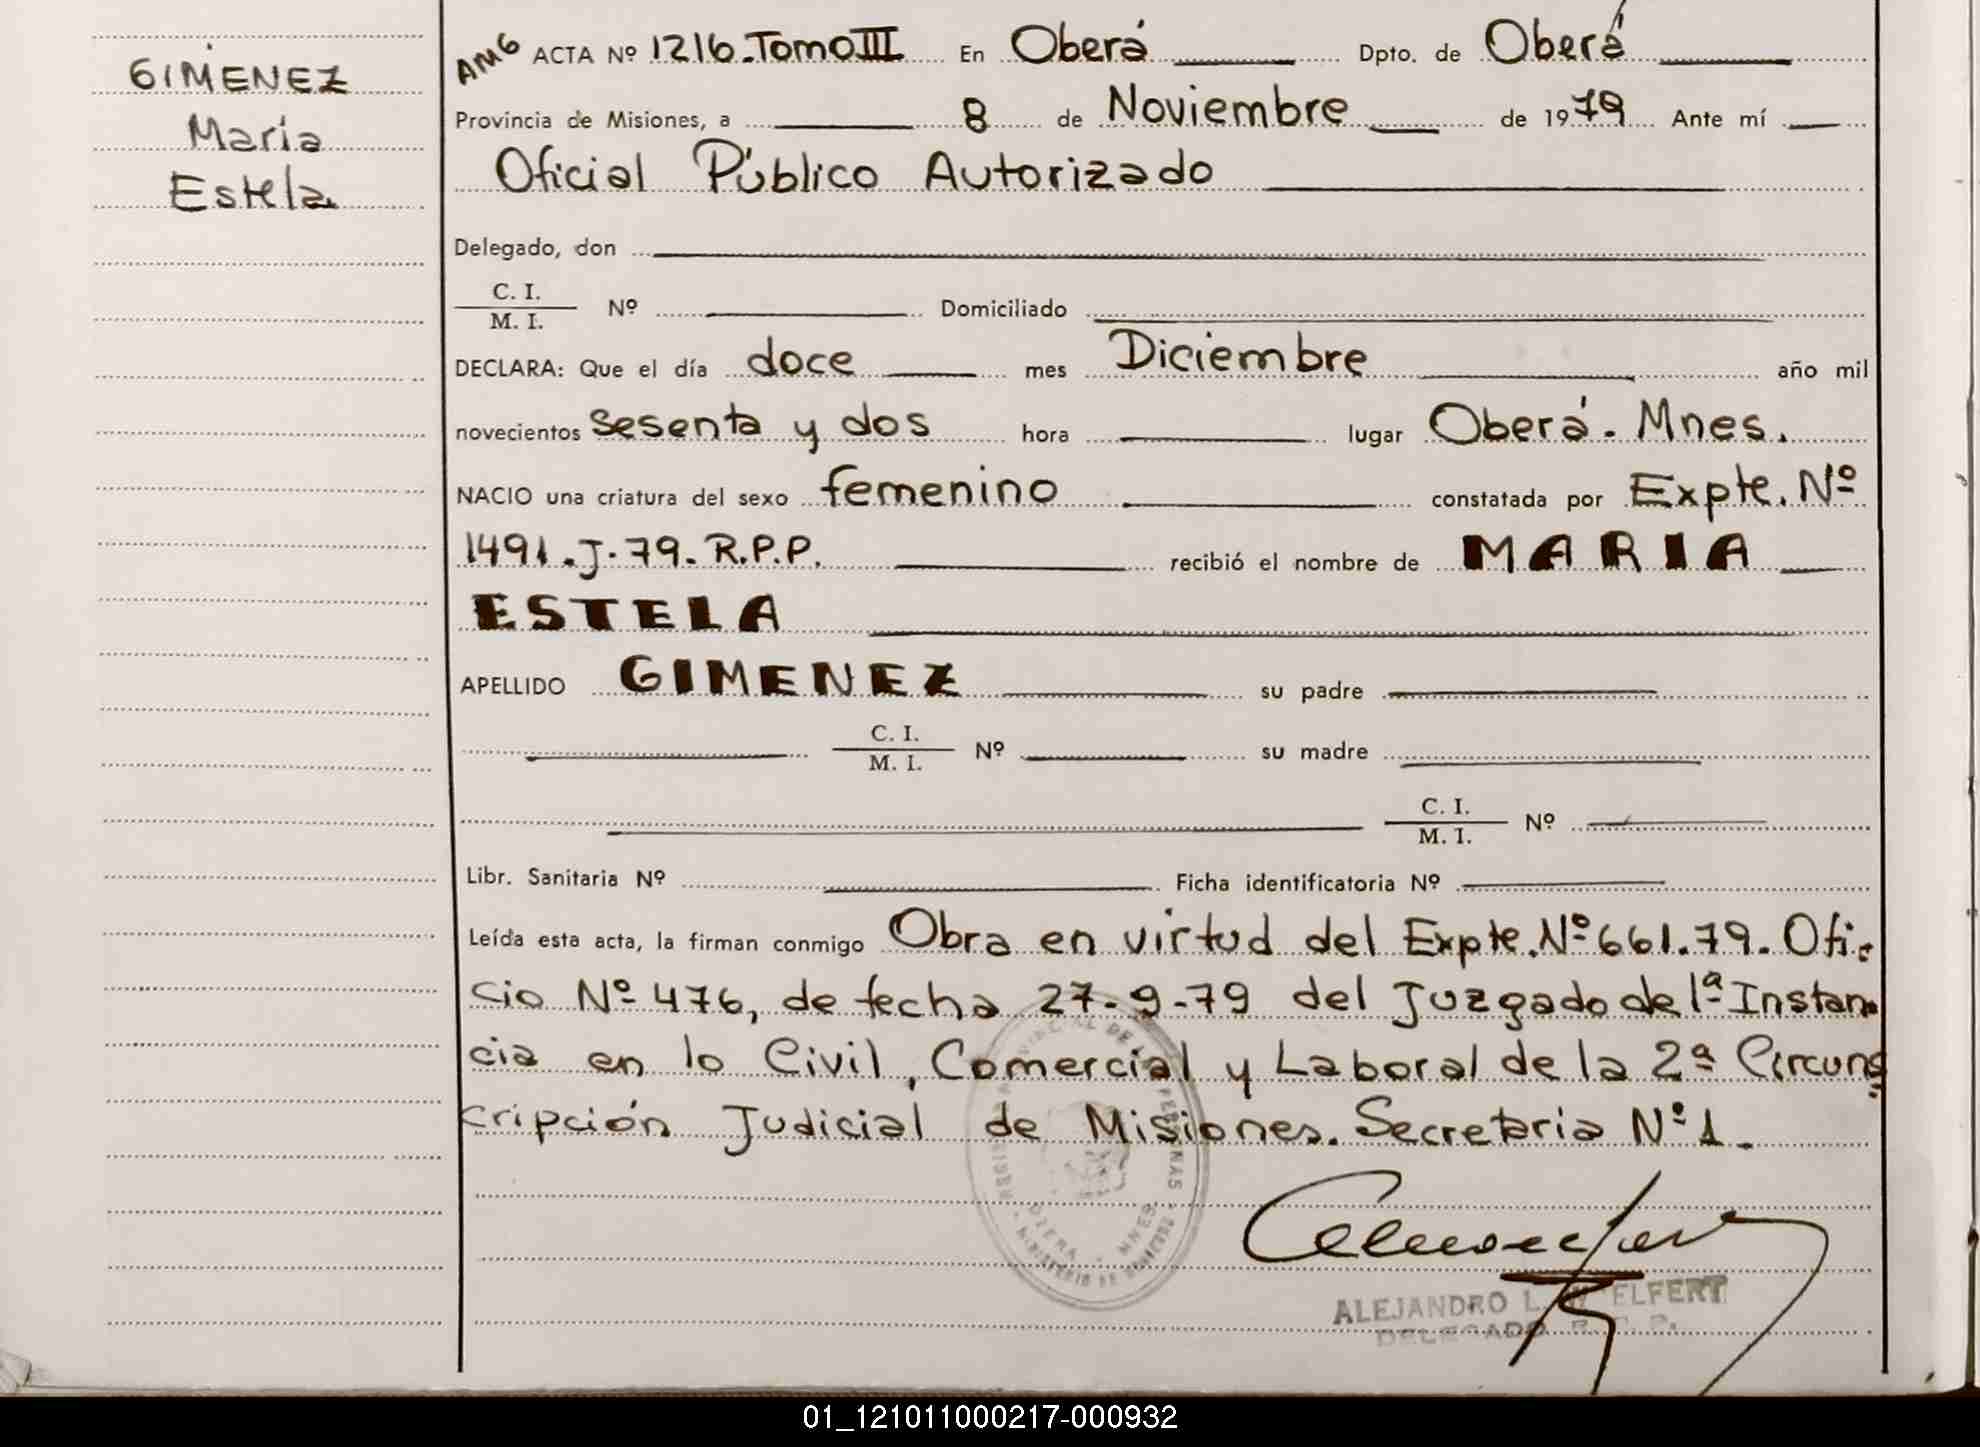 GIMENEZ
María
Estela
AMG ACTA Nº 1216. Tomo III En Oberá Dpto. de Oberá
Provincia de Misiones, a 8 de Noviembre de 1979 Ante mí
Oficial Público Autorizado
Delegado, don
C. I.
M. I. Nº Domiciliado
DECLARA: Que el día doce mes Diciembre año mil
novecientos sesenta y dos hora lugar Oberá. Mnes.
NACIO una criatura del sexo femenino constatada por Expte. Nº
1491.J.79. R.P.P. recibió el nombre de MARIA
ESTELA
APELLIDO GIMENEZ su padre
C. I.
M. I. Nº su madre
C. I.
M. I. Nº
Libr. Sanitaria Nº Ficha identificatoria Nº
Leída esta acta, la firman conmigo Obra en virtud del Expte. Nº 661.79. Ofi-
cio Nº 476, de fecha 27-9-79 del Juzgado de 1ª Instan
cia en lo Civil, Comercial y Laboral de la 2ª Circuns
cripción Judicial de Misiones. Secretaria Nº 1.
ALEJANDRO L. ELFERT
DELEGADO
01_121011000217-000932